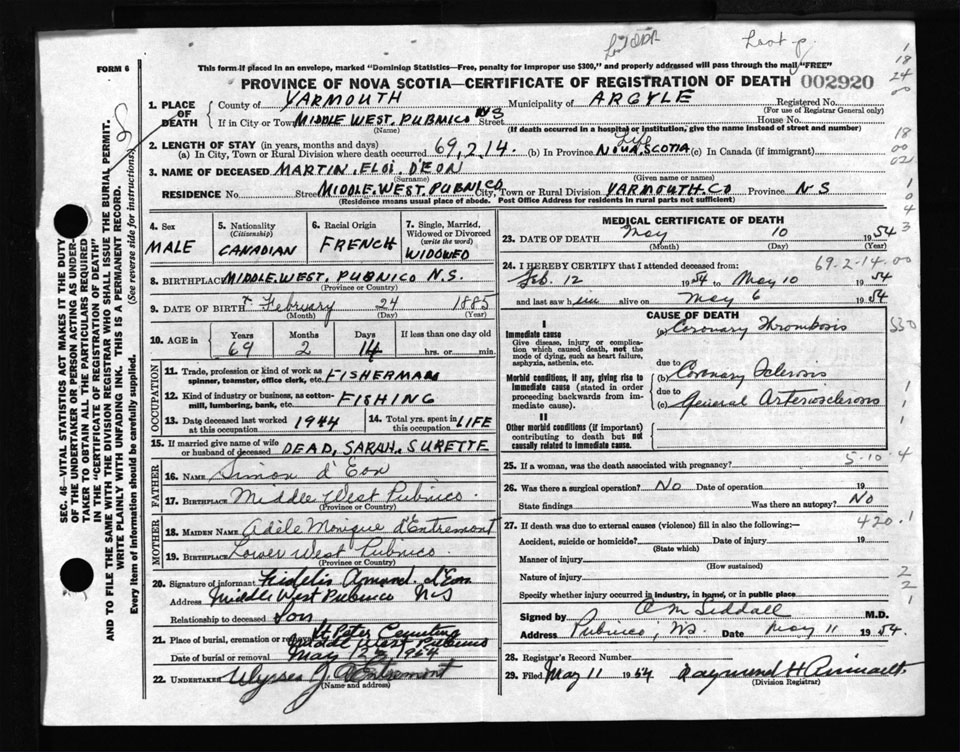 FORM 6
This form if placed in an envelope, marked "Dominion Statistics—Free, penalty for improper use $300," and properly addressed will pass through the mail "FREE"
PROVINCE OF NOVA SCOTIA—CERTIFICATE OF REGISTRATION OF DEATH 002920
1. PLACE OF DEATH
County of YARMOUTH Municipality of ARGYLE Registered No.
(For use of Registrar General only)
If in City or Town MIDDLE WEST. PUBNICO NS Street House No.
(Name) (If death occurred in a hospital or institution, give the name instead of street and number)
2. LENGTH OF STAY (in years, months and days)
(a) In City, Town or Rural Division where death occurred 69, 2, 14. (b) In Province Life NOVA. SCOTIA (c) In Canada (if immigrant)
3. NAME OF DECEASED MARTIN. ELOI. D'EON
(Surname) (Given name or names)
RESIDENCE No. Street MIDDLE. WEST. PUBNICO City, Town or Rural Division YARMOUTH. CO Province N S
(Residence means usual place of abode. Post Office Address for residents in rural parts not sufficient)
4. Sex MALE
5. Nationality (Citizenship) CANADIAN
6. Racial Origin FRENCH
7. Single, Married, Widowed or Divorced (write the word) WIDOWED
8. BIRTHPLACE MIDDLE. WEST. PUBNICO N.S.
(Province or Country)
9. DATE OF BIRTH February 24 1885
(Month) (Day) (Year)
10. AGE in Years 69 Months 2 Days 14 If less than one day old hrs. or min.
OCCUPATION
11. Trade, profession or kind of work as spinner, teamster, office clerk, etc. FISHERMAN
12. Kind of industry or business, as cotton-mill, lumbering, bank, etc. FISHING
13. Date deceased last worked at this occupation 1944
14. Total yrs. spent in this occupation LIFE
15. If married give name of wife or husband of deceased DEAD, SARAH, SURETTE
FATHER
16. NAME Simon d'Eon
17. BIRTHPLACE Middle West Pubnico.
(Province or Country)
MOTHER
18. MAIDEN NAME Adèle Monique d'Entremont
19. BIRTHPLACE Lower West Pubnico.
(Province or Country)
20. Signature of informant Fidelis d'Eon
Address Middle West Pubnico N S
Relationship to deceased Son
21. Place of burial, cremation or removal St Peter Cemetery
Middle West Pubnico
Date of burial or removal May 1954
22. UNDERTAKER Ulysses J. d'Entremont
(Name and address)
MEDICAL CERTIFICATE OF DEATH
23. DATE OF DEATH May 10 1954
(Month) (Day) (Year)
24. I HEREBY CERTIFY that I attended deceased from: 69-2-14-00
Feb. 12 1954 to May 10 1954
and last saw him alive on May 6 1954
CAUSE OF DEATH
I
Immediate cause
Give disease, injury or complication which caused death, not the mode of dying, such as heart failure, asphyxia, asthenia, etc.
(a) Coronary Thrombosis
due to
Morbid conditions, if any, giving rise to immediate cause (stated in order proceeding backwards from immediate cause).
(b) Coronary Sclerosis
due to
(c) General Arteriosclerosis
II
Other morbid conditions (if important) contributing to death but not causally related to immediate cause.
25. If a woman, was the death associated with pregnancy? 5-10-4
26. Was there a surgical operation? No Date of operation 19
State findings Was there an autopsy? No
27. If death was due to external causes (violence) fill in also the following:— 420.1
Accident, suicide or homicide? Date of injury 19
(State which)
Manner of injury
(How sustained)
Nature of injury
Specify whether injury occurred in industry, in home, or in public place
Signed by O M Siddall M.D.
Address Pubnico, N.S. Date May 11 1954.
28. Registrar's Record Number
29. Filed May 11 1954 Raymond H
(Division Registrar)
SEC. 46—VITAL STATISTICS ACT MAKES IT THE DUTY OF THE UNDERTAKER OR PERSON ACTING AS UNDERTAKER TO OBTAIN ALL THE PARTICULARS REQUIRED IN THE "CERTIFICATE OF REGISTRATION OF DEATH" AND TO FILE THE SAME WITH THE DIVISION REGISTRAR WHO SHALL ISSUE THE BURIAL PERMIT.
WRITE PLAINLY WITH UNFADING INK. THIS IS A PERMANENT RECORD.
Every item of information should be carefully supplied. (See reverse side for instructions)